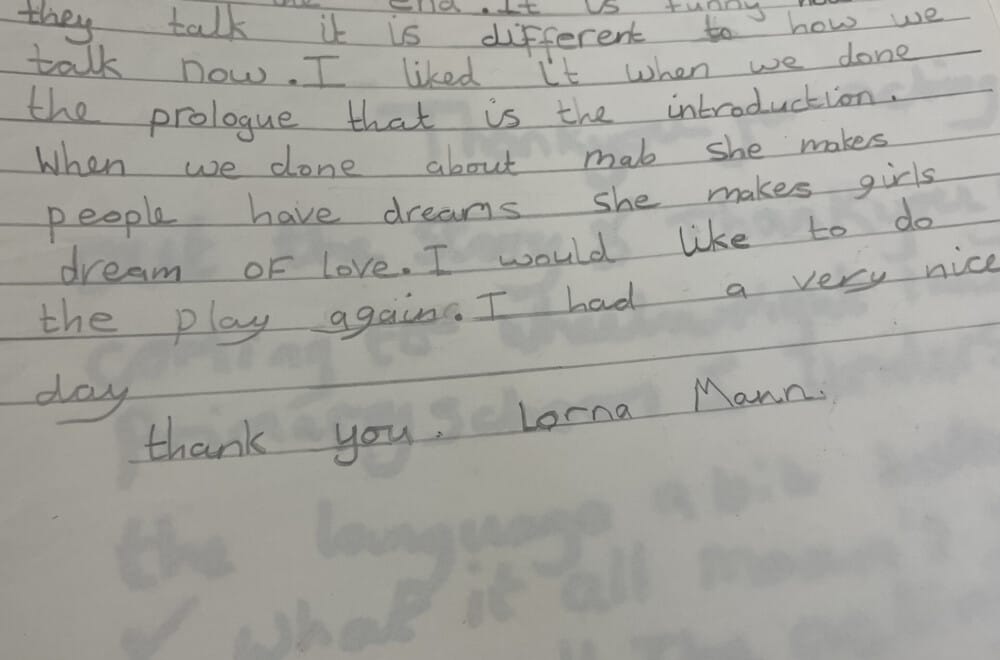 the end. It is funny how
they talk it is different to how we
talk now. I liked it when we done
the prologue that is the introduction.
When we done about mab she makes
people have dreams she makes girls
dream OF love. I would like to do
the play again. I had a very nice
day
thank you. Lorna Mann.
the language a bit
what it all mean